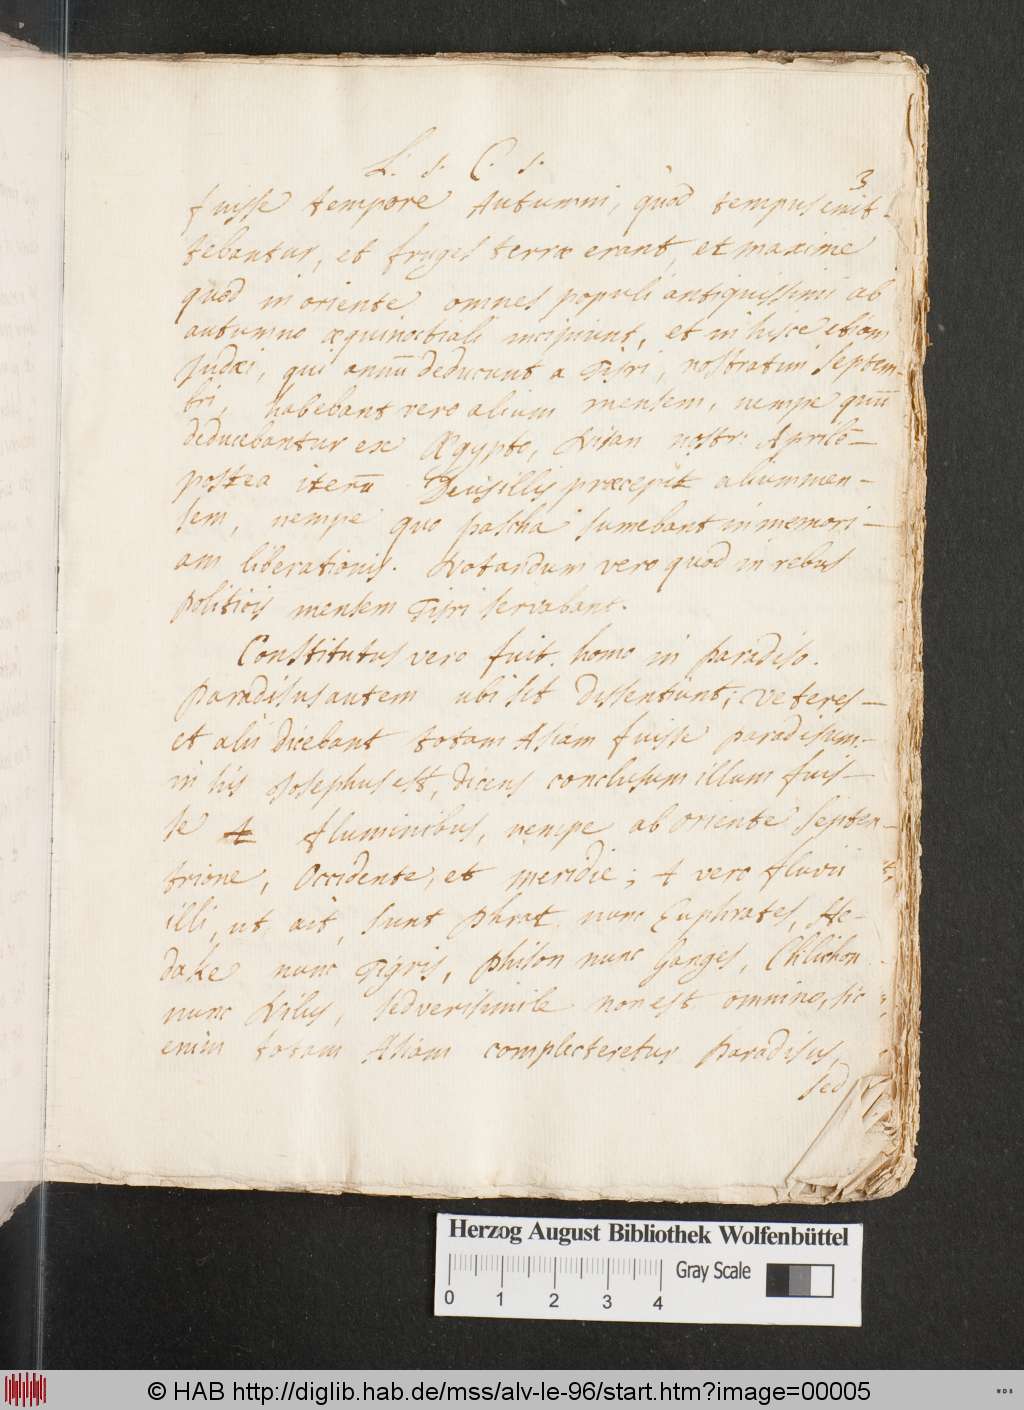 L. s. C. s.
3
fuisse tempore Autumni, quod tempus enit
tebantur, et fruges terræ erant, et maxime
quod in oriente omnes populi antiquissimi ab
autumno æquinoctiali incipiunt, et in hisce etiam
Judæi, qui annū deducunt a Tisri, nostratum Septem-
bri, habebant vero alium mensem, nempe quū
deducebantur ex Ægypto, Nisan nostr: Aprilē
postea iterū Deus illis præcepit alium men-
sem, nempe quo pascha sumebant in memori-
am liberationis. Notandum vero quod in rebus
politicis mensem Tisri servabant.
Constitutus vero fuit homo in paradiso.
Paradisus autem ubi sit dissentiunt; veteres
et alii dicebant totam Asiam fuisse paradisum.
in his Josephus est, dicens conclusum illum fuis-
se 4 fluminibus, nempe ab oriente Septen-
trione, Occidente, et meridie; 4 vero fluvii
illi, ut ait, sunt Phrat nunc Euphrates, He-
dake nunc Tigris, Phison nunc Ganges, Chlichon
nunc Nilus, sed verisimile non est omnino, sic
enim totam Asiam complecteretur Paradisus,
sed
Herzog August Bibliothek Wolfenbüttel
Gray Scale
0 1 2 3 4
© HAB http://diglib.hab.de/mss/alv-le-96/start.htm?image=00005